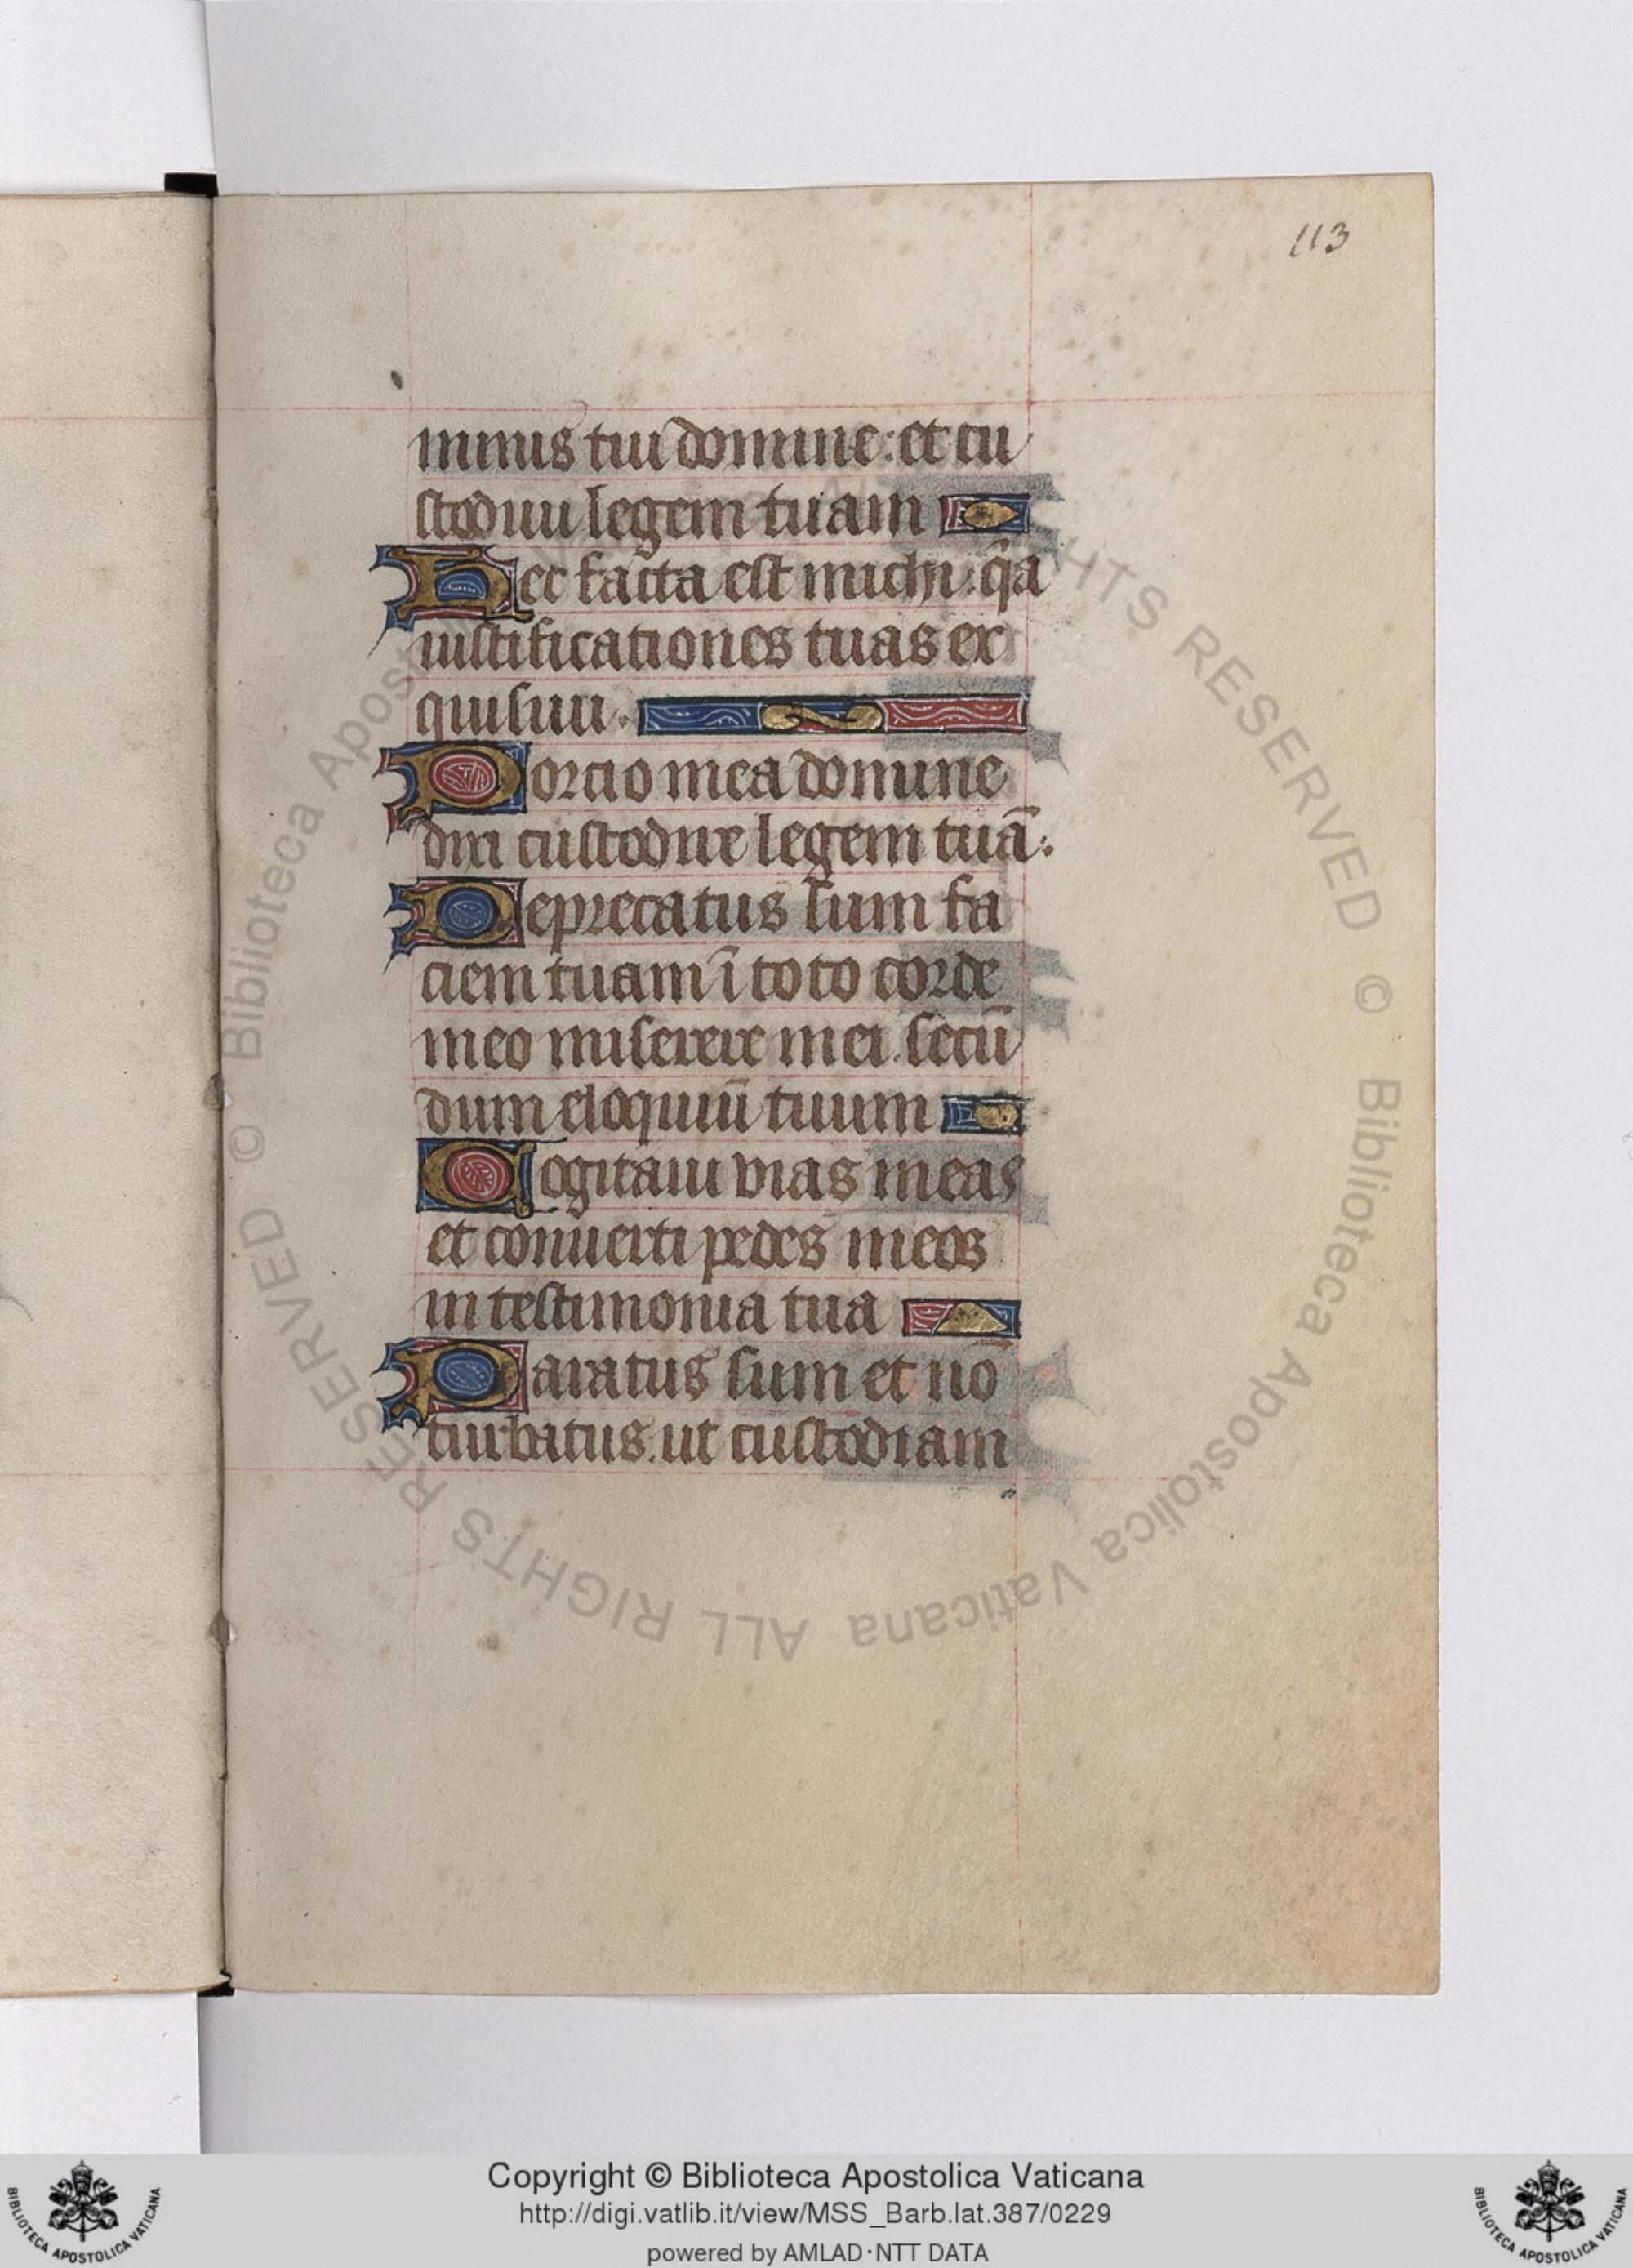 113
minis tui domine: et cu
stodiui legem tuam
Hec facta est michi: q̄a
iustificationes tuas ex
quisiui.
Porcio mea domine
dixi custodire legem tuā:
Deprecatus sum fa
ciem tuam ī toto corde
meo miserere mei secū
dum eloquiū tuum
Cogitaui uias meas
et conuerti pedes meos
in testimonia tua
Paratus sum et nō
turbatus. ut custodiam
© Biblioteca Apostolica Vaticana ALL RIGHTS RESERVED © Biblioteca Apostolica Vaticana ALL RIGHTS RESERVED
Copyright © Biblioteca Apostolica Vaticana
http://digi.vatlib.it/view/MSS_Barb.lat.387/0229
powered by AMLAD·NTT DATA
BIBLIOTECA APOSTOLICA VATICANA
BIBLIOTECA APOSTOLICA VATICANA